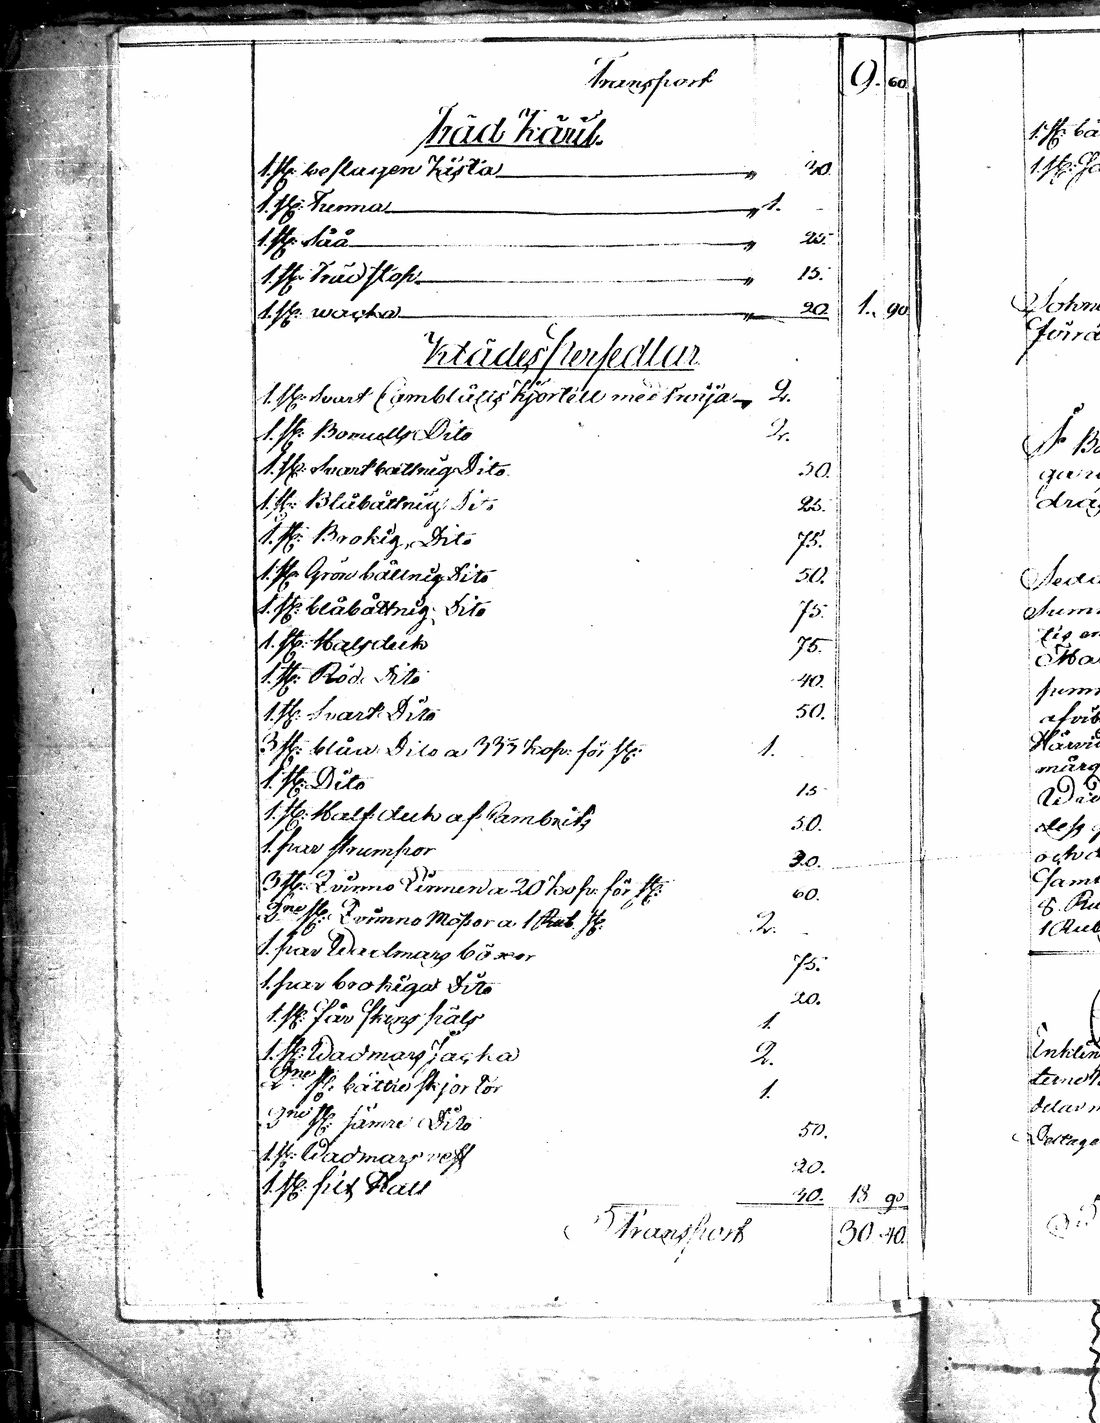 Transport 9. 60
Träd Käril.
1. st: beslagen Kista " 30
1. st: Tunna " 1. -
1. st: Såå " 25.
1. st: Träd stop " 15.
1. st: wacka " 20 1. 90
Klädespersedlar
1. st: Svart Camblåtts Kjortell med Tröija 2.
1. st: Bomulls Dito 2.
1. st: Svartbåttnig Dito 50.
1. st: Blåbåttnig Dito 25.
1. st: Brokig Dito 75.
1. st: Grönbåttnig Dito 50.
1. st: blåbåttnig Dito 75.
1. st: Halsduk 75.
1. st: Röd Dito 40.
1. st: Svart Dito 50.
3 st: blåa Dito a 33⅓ kop: för st: 1.
1. st: Dito 15
1. st: Halsduk af Cambrik 50.
1. par strumpor 30.
3 st: Qvinno Linnen a 20 kop: för st: 60.
2ne st: Qvinno Mössor a 1 Rub. st: 2.
1. par Wadmars böxor 75.
1. par brokiga Dito 20.
1. st: Får Skins päls 1.
1. st: Wadmars Jacka 2.
2ne st: bättre skjortor 1.
3ne st: sämre Dito 50.
1. st: Wadmars väst 20.
1. st: filt Hatt 30. 18 90
Transport 30 40.